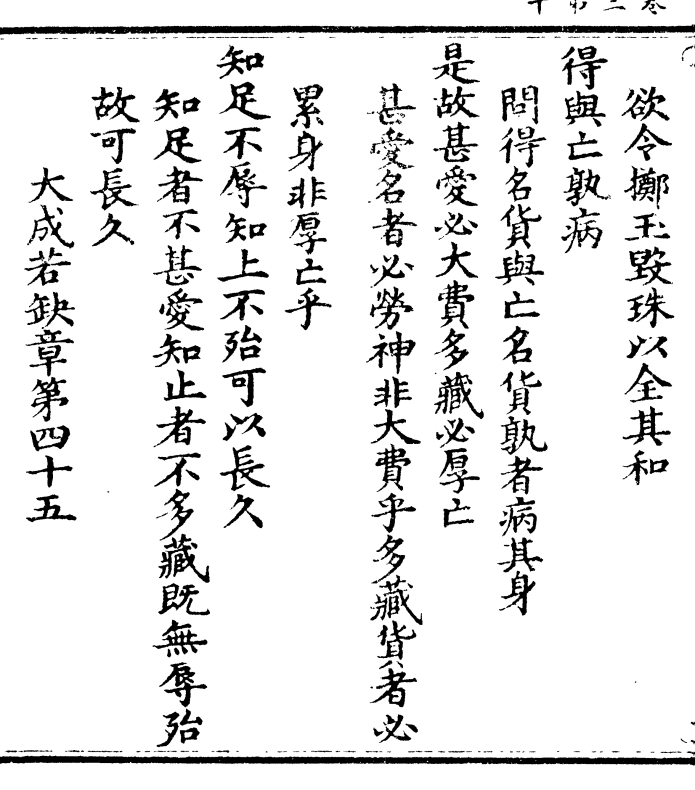 欲令擲玉毀珠以全其和
得與亡孰病
問得名貨與亡名貨孰者病其身
是故甚愛必大費多藏必厚亡
甚愛名者必勞神非大費乎多藏貨者必
累身非厚亡乎
知足不辱知上不殆可以長久
知足者不甚愛知止者不多藏既無辱殆
故可長久
大成若缺章第四十五